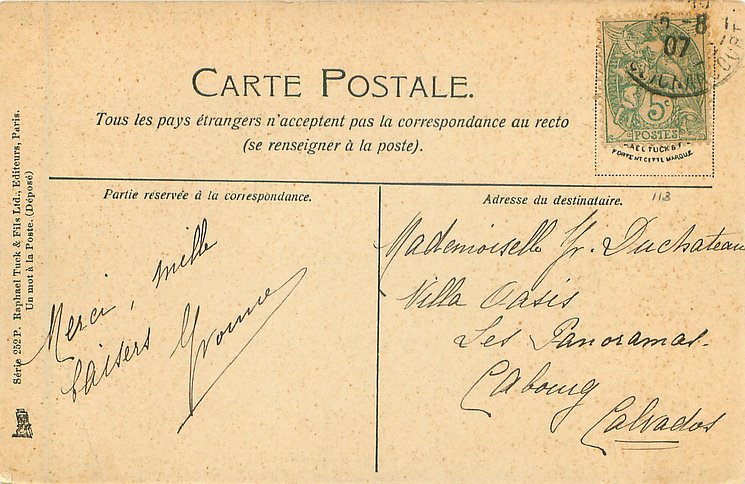 CARTE POSTALE.
Tous les pays étrangers n'acceptent pas la correspondance au recto
(se renseigner à la poste).
Partie réservée à la correspondance.
Merci, mille
baisers Yvonne
Adresse du destinataire.
113
Mademoiselle Yv. Duchateau
Villa Oasis
Les Panoramas.
Cabourg
Calvados
Série 252 P. Raphael Tuck & Fils Ltd., Editeurs, Paris.
Un mot à la Poste. (Déposé)
-8
07
5c
POSTES
PORTENT CETTE MARQUE